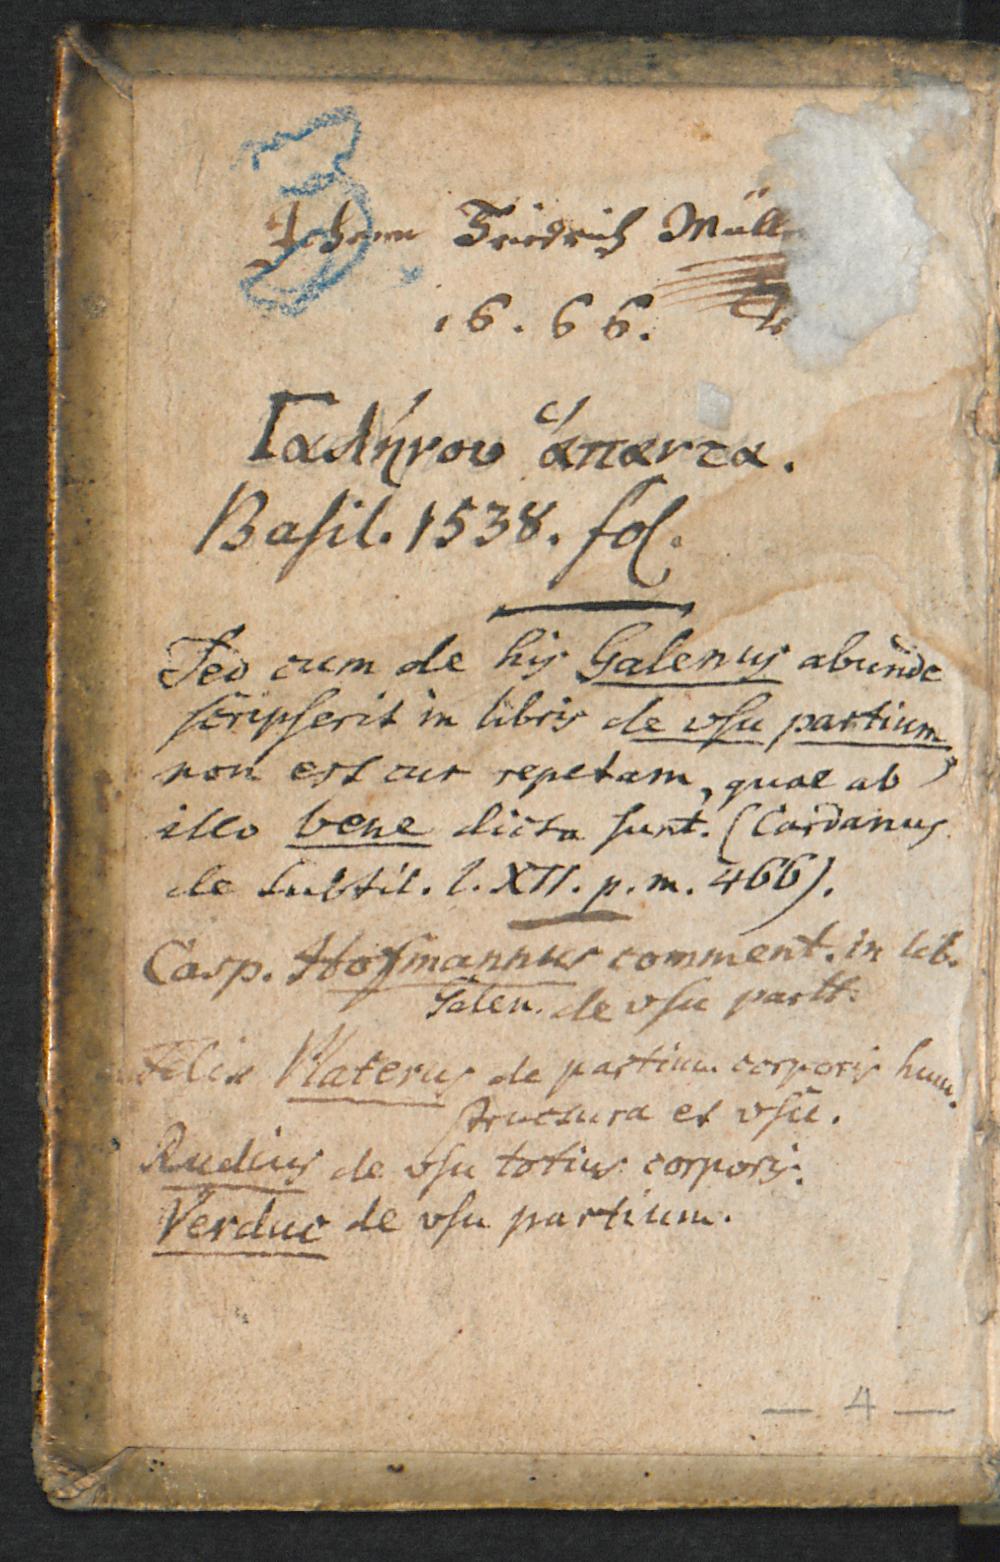 3
Johann Friedrich Müll
16.66.
Γαλήνου ἅπαντα.
Basil. 1538. fol.
Sed cum de his Galenus abunde
scripserit in libris de vsu partium,
non est cur repetam, quae ab
illo bene dicta sunt. (Cardanus
de Subtil. l. XII. p. m. 466).
Casp. Hofmannus comment. in lib.
Galen. de vsu partt.
Felix Platerus de partium corporis hum.
structura et vsu.
Rudius de vsu totius corporis.
Verduc de vsu partium.
— 4 —